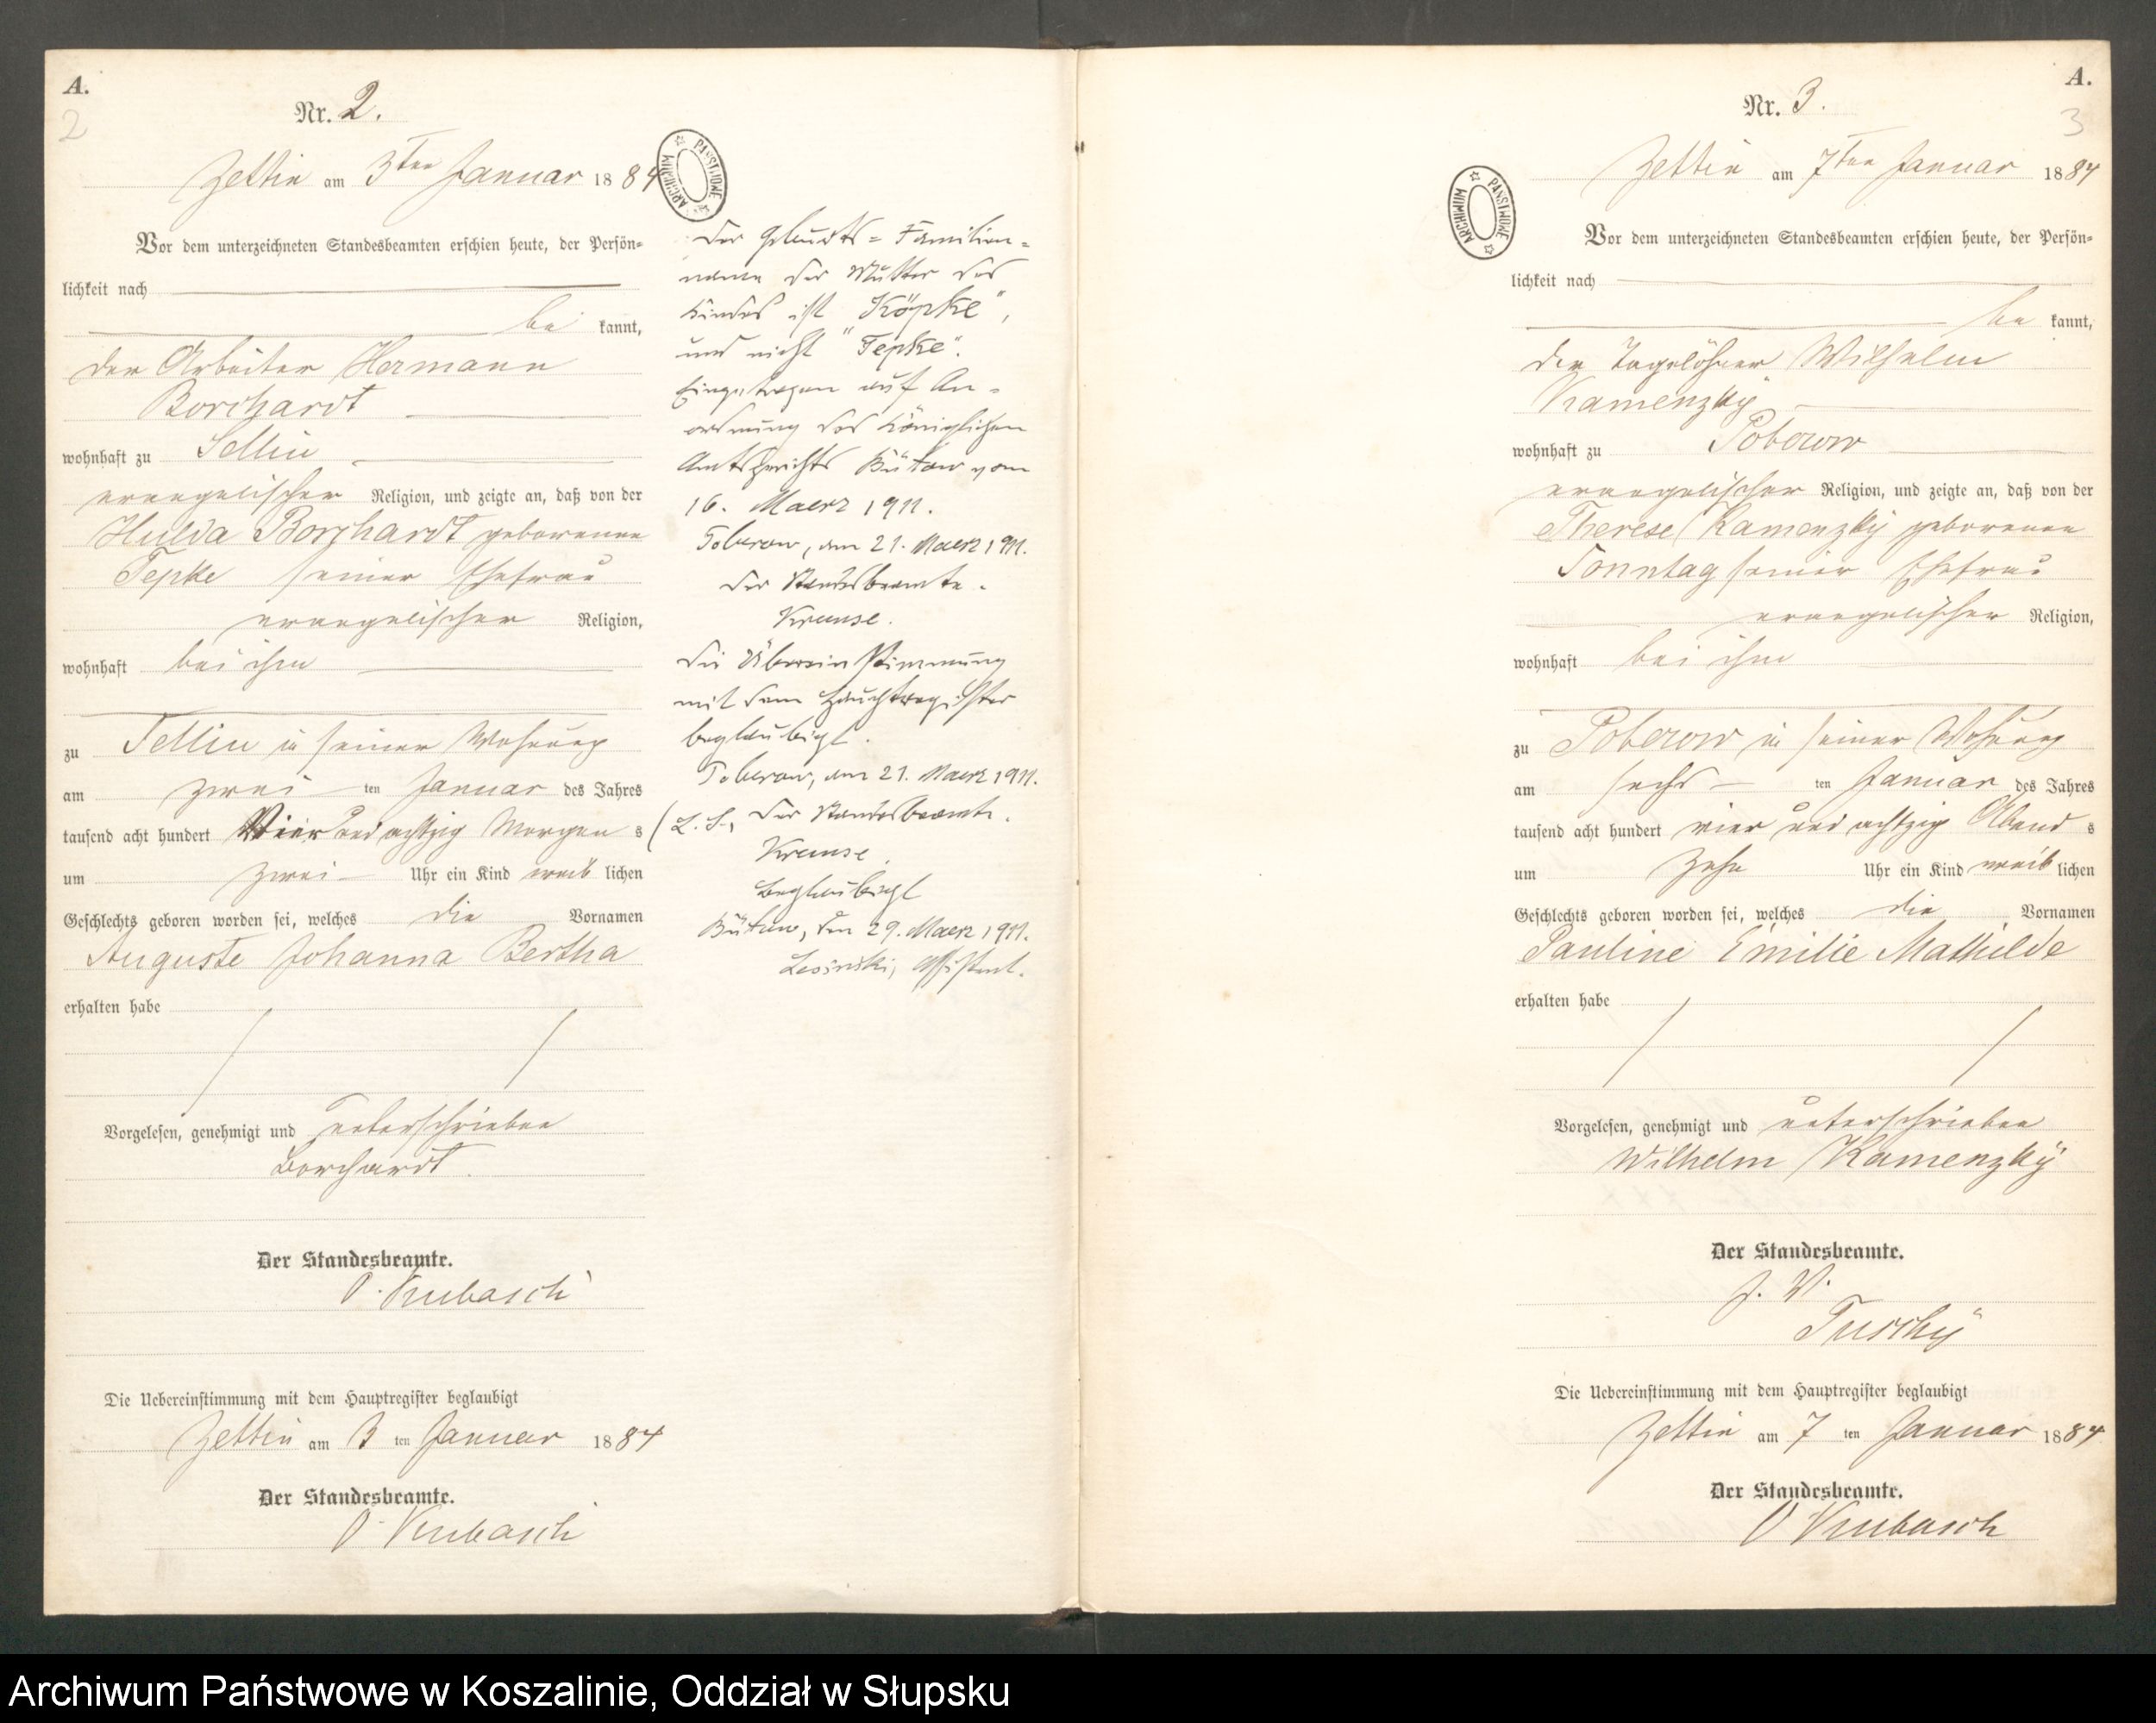 A.
2
Nr. 2.
Zettin am 3ten Januar 1884
Vor dem unterzeichneten Standesbeamten erschien heute, der Persön-
lichkeit nach
be kannt,
der Arbeiter Hermann
Borchardt
wohnhaft zu Sellin
evangelischer Religion, und zeigte an, daß von der
Hulda Borchardt geborenen
Tepke seiner Ehefrau
evangelischer Religion,
wohnhaft bei ihm
zu Sellin in seiner Wohnung
am zwei ten Januar des Jahres
tausend acht hundert Vier und achtzig Morgen s
um zwei Uhr ein Kind weib lichen
Geschlechts geboren worden sei, welches die Vornamen
Auguste Johanna Bertha
erhalten habe
Vorgelesen, genehmigt und unterschrieben
Borchardt.
Der Standesbeamte.
O. Kubasch
Die Uebereinstimmung mit dem Hauptregister beglaubigt
Zettin am 3 ten Januar 1884
Der Standesbeamte.
O. Kubasch
ARCHIWUM PAŃSTWOWE
Der Geburts-Familien-
name der Mutter des
Kindes ist "Köpke",
und nicht "Tepke".
Eingetragen auf An-
ordnung des Königlichen
Amtsgerichts Bütow vom
16. Maerz 1911.
Poberow, den 21. Maerz 1911.
Der Standesbeamte.
Krause.
Die Übereinstimmung
mit dem Hauptregister
beglaubigt.
Poberow, den 21. Maerz 1911.
(L. S., Der Standesbeamte.
Krause.
Beglaubigt
Bütow, den 29. Maerz 1911.
Lesinski, Assistent.
A.
3
Nr. 3.
ARCHIWUM PAŃSTWOWE
Zettin am 7ten Januar 1884
Vor dem unterzeichneten Standesbeamten erschien heute, der Persön-
lichkeit nach
be kannt,
der Tagelöhner Wilhelm
Kamenzky
wohnhaft zu Poberow
evangelischer Religion, und zeigte an, daß von der
Therese Kamenzky geborenen
Sonntag seiner Ehefrau
evangelischer Religion,
wohnhaft bei ihm
zu Poberow in seiner Wohnung
am sechs ten Januar des Jahres
tausend acht hundert vier und achtzig Abend s
um Zehn Uhr ein Kind weib lichen
Geschlechts geboren worden sei, welches die Vornamen
Pauline Emilie Mathilde
erhalten habe
Vorgelesen, genehmigt und unterschrieben
Wilhelm Kamenzky
Der Standesbeamte.
J. V.
Tuschy
Die Uebereinstimmung mit dem Hauptregister beglaubigt
Zettin am 7 ten Januar 1884
Der Standesbeamte.
O Kubasch
Archiwum Państwowe w Koszalinie, Oddział w Słupsku